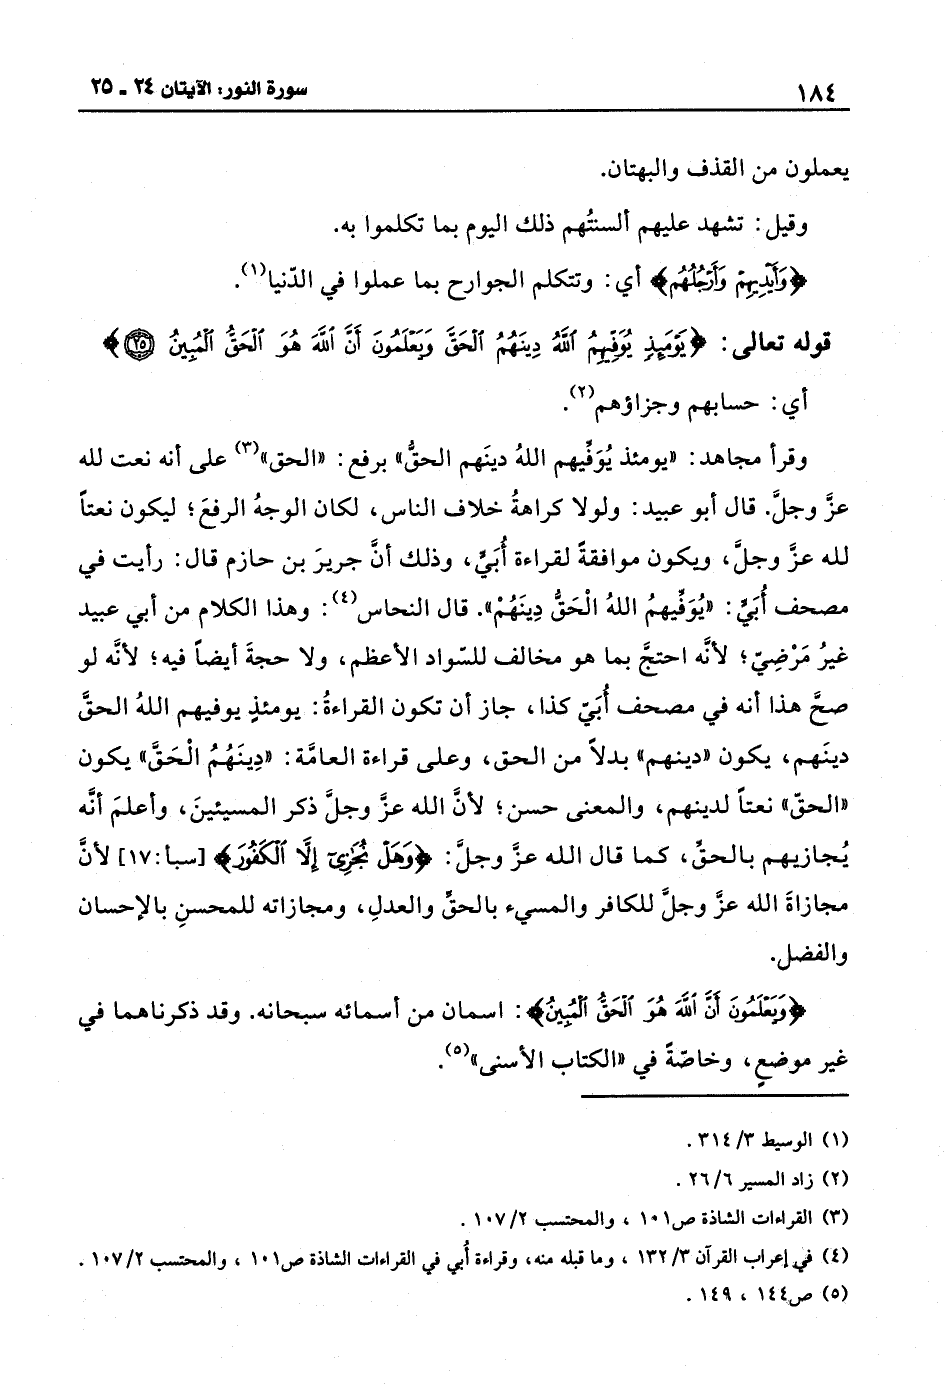 ١٨٤
سورة النور: الآيتان ٢٤ ـ ٢٥
يعملون من القذف والبهتان.
وقيل: تشهد عليهم ألسنتُهم ذلك اليوم بما تكلموا به.
﴿وَأَيْدِيهِمْ وَأَرْجُلُهُم﴾ أي: وتتكلم الجوارح بما عملوا في الدّنيا(١).
قوله تعالى: ﴿يَوْمَئِذٍ يُوَفِّيهِمُ ٱللَّهُ دِينَهُمُ ٱلْحَقَّ وَيَعْلَمُونَ أَنَّ ٱللَّهَ هُوَ ٱلْحَقُّ ٱلْمُبِينُ ٢٥﴾
أي: حسابهم وجزاؤهم(٢).
وقرأ مجاهد: «يومئذ يُوَفِّيهم اللهُ دينَهم الحقُّ» برفع: «الحق»(٣) على أنه نعت لله
عزَّ وجلَّ. قال أبو عبيد: ولولا كراهةُ خلاف الناس، لكان الوجهُ الرفعَ؛ ليكون نعتاً
لله عزَّ وجلَّ، ويكون موافقةً لقراءة أُبَيٍّ، وذلك أنَّ جريرَ بن حازم قال: رأيت في
مصحف أُبَيٍّ: «يُوَفِّيهمُ اللهُ الْحَقُّ دِينَهُمْ». قال النحاس(٤): وهذا الكلام من أبي عبيد
غيرُ مَرْضِيّ؛ لأنَّه احتجَّ بما هو مخالف للسّواد الأعظم، ولا حجةَ أيضاً فيه؛ لأنَّه لو
صحَّ هذا أنه في مصحف أُبَيّ كذا، جاز أن تكون القراءةُ: يومئذٍ يوفيهم اللهُ الحقَّ
دينَهم، يكون «دينهم» بدلاً من الحق، وعلى قراءة العامَّة: «دِينَهُمُ الْحَقَّ» يكون
«الحقّ» نعتاً لدينهم، والمعنى حسن؛ لأنَّ الله عزَّ وجلَّ ذكر المسيئينَ، وأعلمَ أنَّه
يُجازيهم بالحقِّ، كما قال الله عزَّ وجلَّ: ﴿وَهَلْ نُجَٰزِىٓ إِلَّا ٱلْكَفُورَ﴾ [سبأ: ١٧] لأنَّ
مجازاةَ الله عزَّ وجلَّ للكافر والمسيء بالحقِّ والعدلِ، ومجازاته للمحسنِ بالإحسان
والفضل.
﴿وَيَعْلَمُونَ أَنَّ ٱللَّهَ هُوَ ٱلْحَقُّ ٱلْمُبِينُ﴾: اسمان من أسمائه سبحانه. وقد ذكرناهما في
غير موضعٍ، وخاصّةً في «الكتاب الأسنى»(٥).
(١) الوسيط ٣/ ٣١٤ .
(٢) زاد المسير ٦/ ٢٦ .
(٣) القراءات الشاذة ص١٠١ ، والمحتسب ٢/ ١٠٧ .
(٤) في إعراب القرآن ٣/ ١٣٢ ، وما قبله منه، وقراءة أُبي في القراءات الشاذة ص١٠١ ، والمحتسب ٢/ ١٠٧ .
(٥) ص١٤٤ ، ١٤٩ .